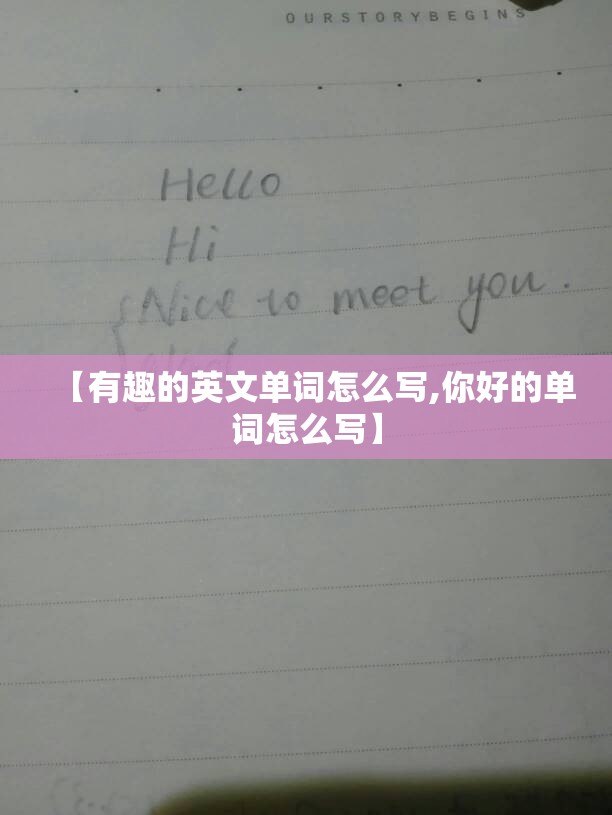 OURSTORYBEGINS
Hello
Hi
Nice to meet you.
【有趣的英文单词怎么写,你好的单
词怎么写】